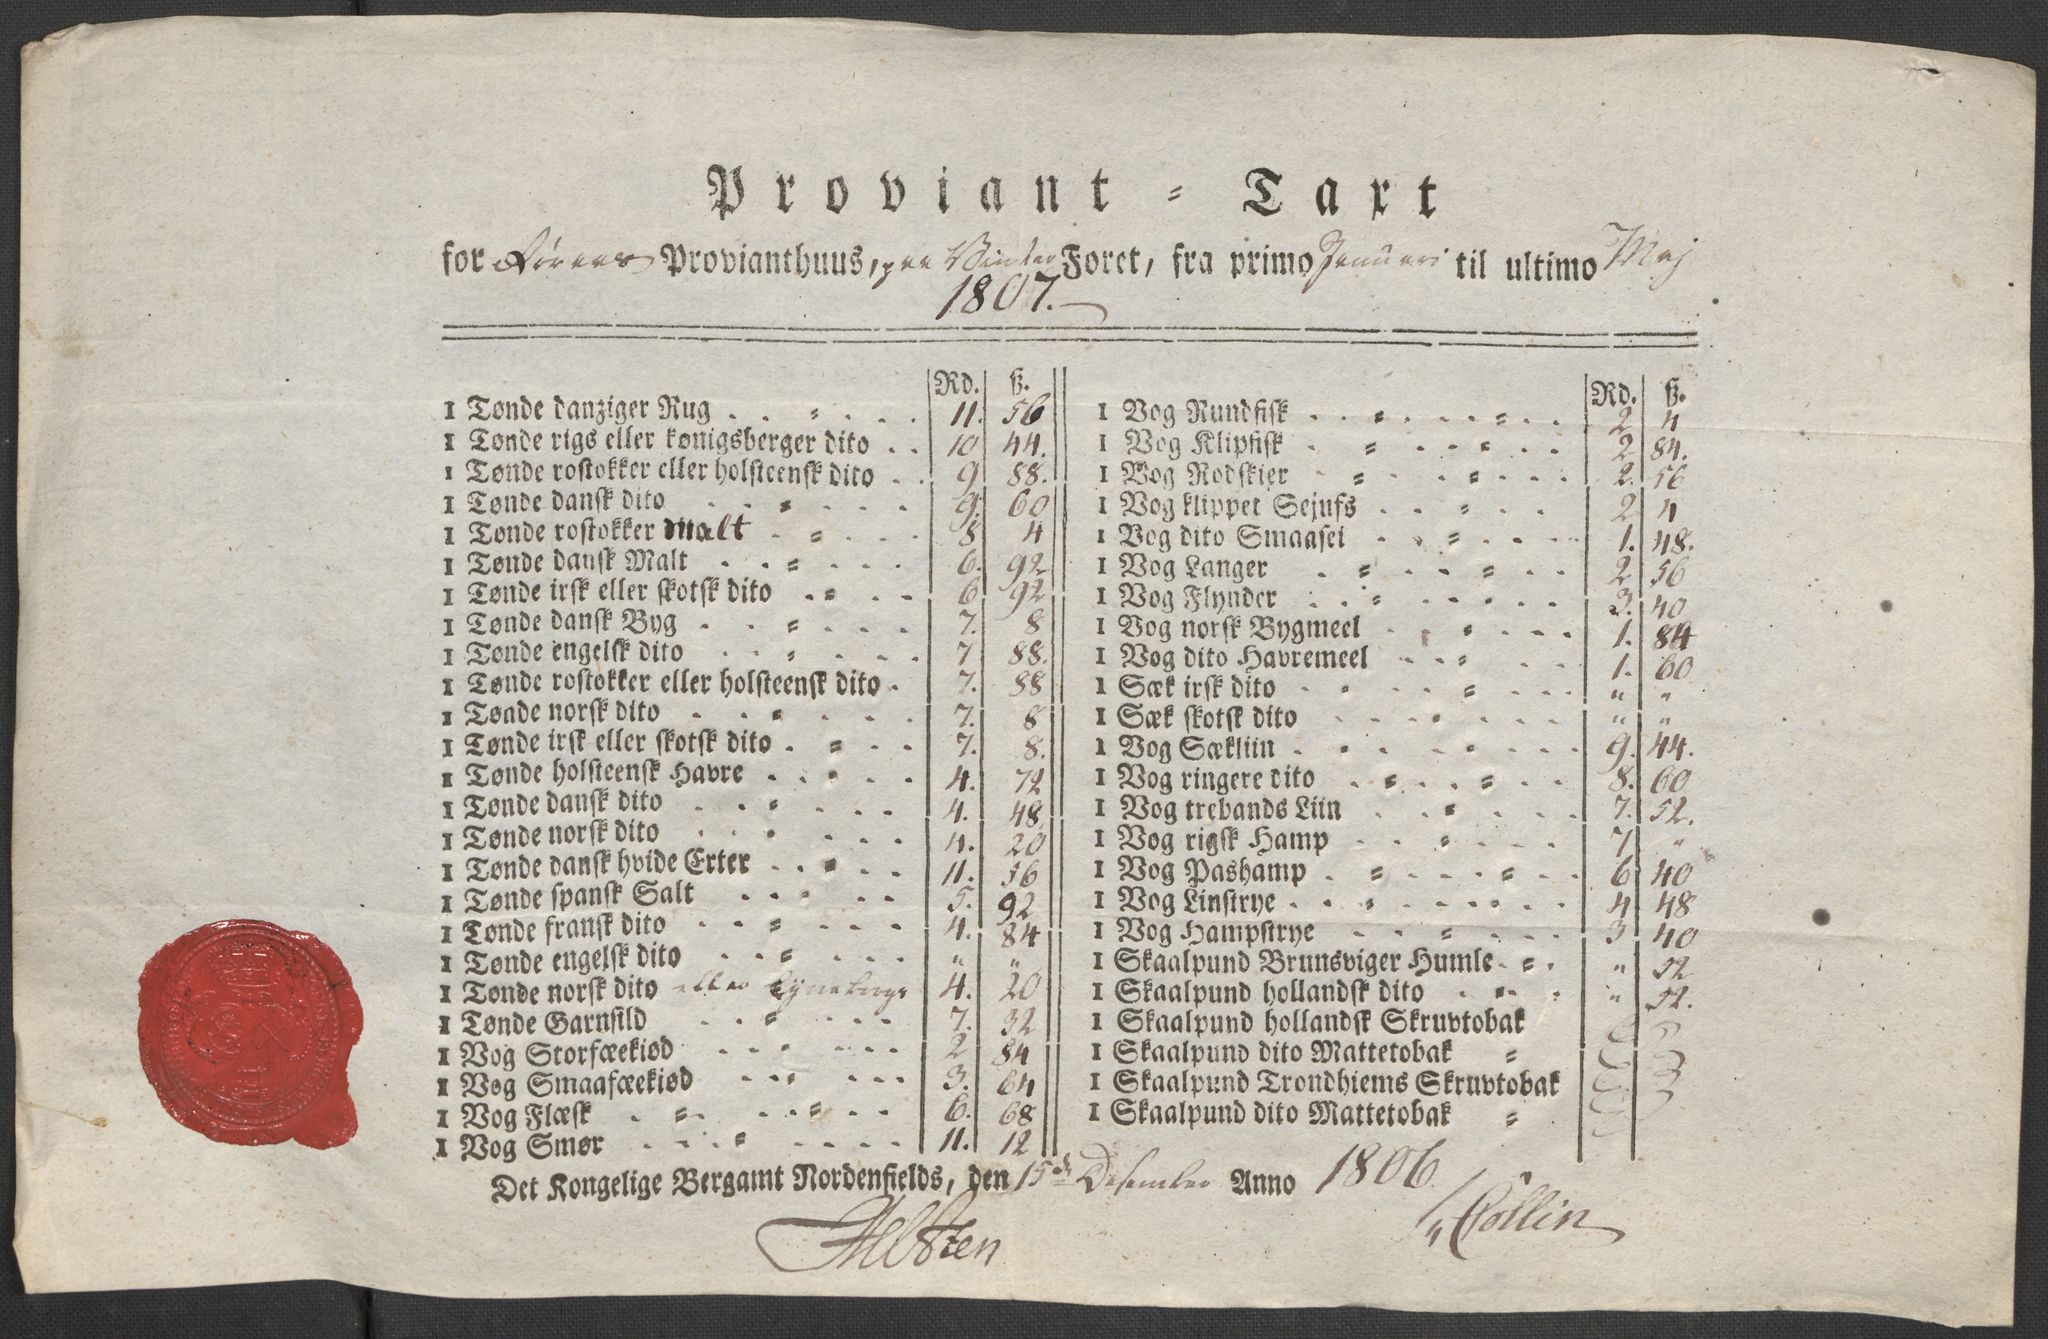 Proviant = Taxt
for Provianthuus, paa Vinter Foret, fra primo Januari til ultimo Maj
1807.
Rd. ß.
1 Tønde danziger Rug 11. 56
1 Tønde rigs eller kønigsberger dito 10 44.
1 Tønde rostokker eller holsteensk dito 9 88.
1 Tønde dansk dito 9. 60
1 Tønde rostokker malt 8 4
1 Tønde dansk Malt 6. 92
1 Tønde irsk eller skotsk dito 6 92
1 Tønde dansk Byg 7. 8
1 Tønde engelsk dito 7 88.
1 Tønde rostokker eller holsteensk dito 7. 88
1 Tønde norsk dito 7. 8
1 Tønde irsk eller skotsk dito 7. 8.
1 Tønde holsteensk Havre 4. 72
1 Tønde dansk dito 4. 48
1 Tønde norsk dito 4. 20
1 Tønde dansk hvide Erter 11. 56
1 Tønde spansk Salt 5. 92
1 Tønde fransk dito 4. 84
1 Tønde engelsk dito " "
1 Tønde norsk dito eller Lyneborgs 4. 20
1 Tønde Garnsild 7. 32
1 Vog Storfæekiød 2 84
1 Vog Smaafæekiød 3. 64
1 Vog Flæsk 6. 68
1 Vog Smør 11. 12
Rd. ß.
1 Vog Rundfisk 2 4
1 Vog Klipfisk 2 84.
1 Vog Rodskier 2. 56
1 Vog klippet Sejufs 2 4
1 Vog dito Smaasei 1. 48.
1 Vog Langer 2 56
1 Vog Flynder 3. 40
1 Vog norsk Bygmeel 1. 84
1 Vog dito Havremeel 1. 60
1 Sæk irsk dito " "
1 Sæk skotsk dito " "
1 Vog Sækliin 9. 44.
1 Vog ringere dito 8. 60
1 Vog trebands Liin 7. 52.
1 Vog rigsk Hamp 7 "
1 Vog Pashamp 6 40
1 Vog Linstrye 4 48
1 Vog Hampstrye 3 40
1 Skaalpund Brunsviger Humle " 52
1 Skaalpund hollandsk dito " 52.
1 Skaalpund hollandsk Skruvtobak
1 Skaalpund dito Mattetobak
1 Skaalpund Trondhiems Skruvtobak
1 Skaalpund dito Mattetobak
Det Kongelige Bergamt Nordenfields, den 15de Desember Anno 1806
Collin